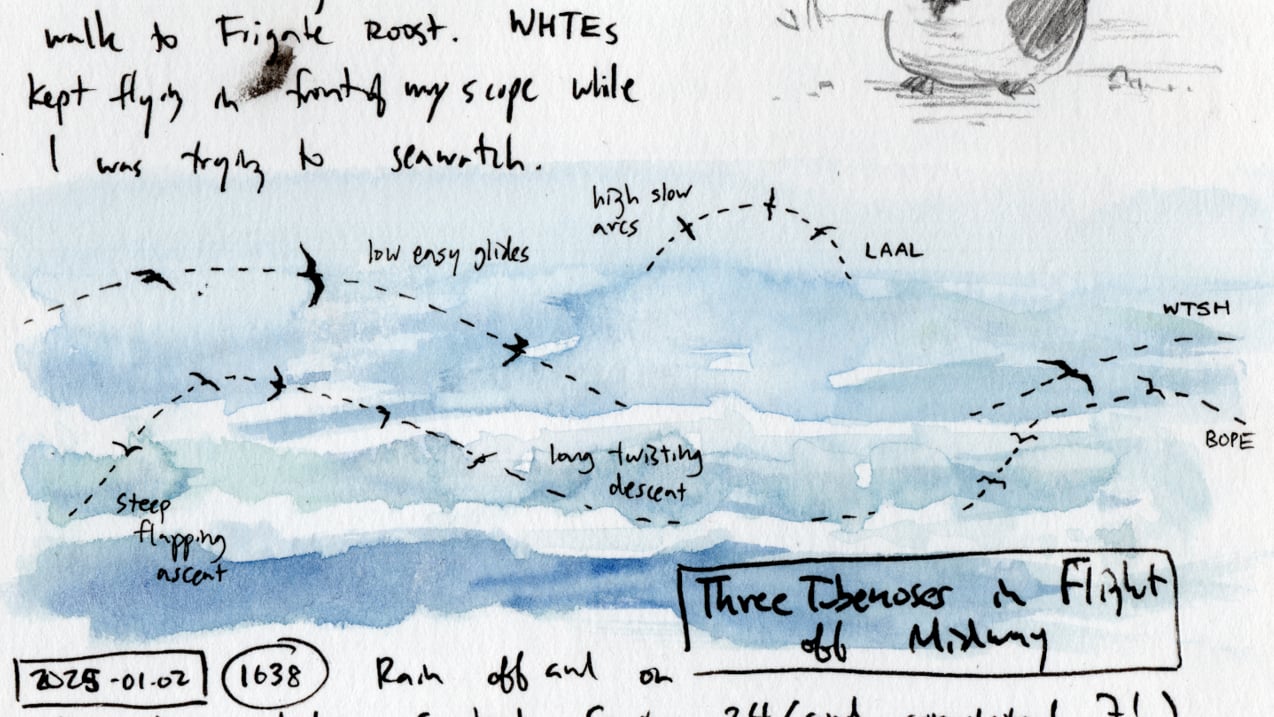 walk to Frigate Roost. WHTEs
kept flying in front of my scope while
I was trying to seawatch.
high slow
arcs
LAAL
low easy glides
WTSH
BOPE
long twisting
descent
steep
flapping
ascent
Three Tubenoses in Flight
off Midway
2025-01.02 1638 Rain off and on